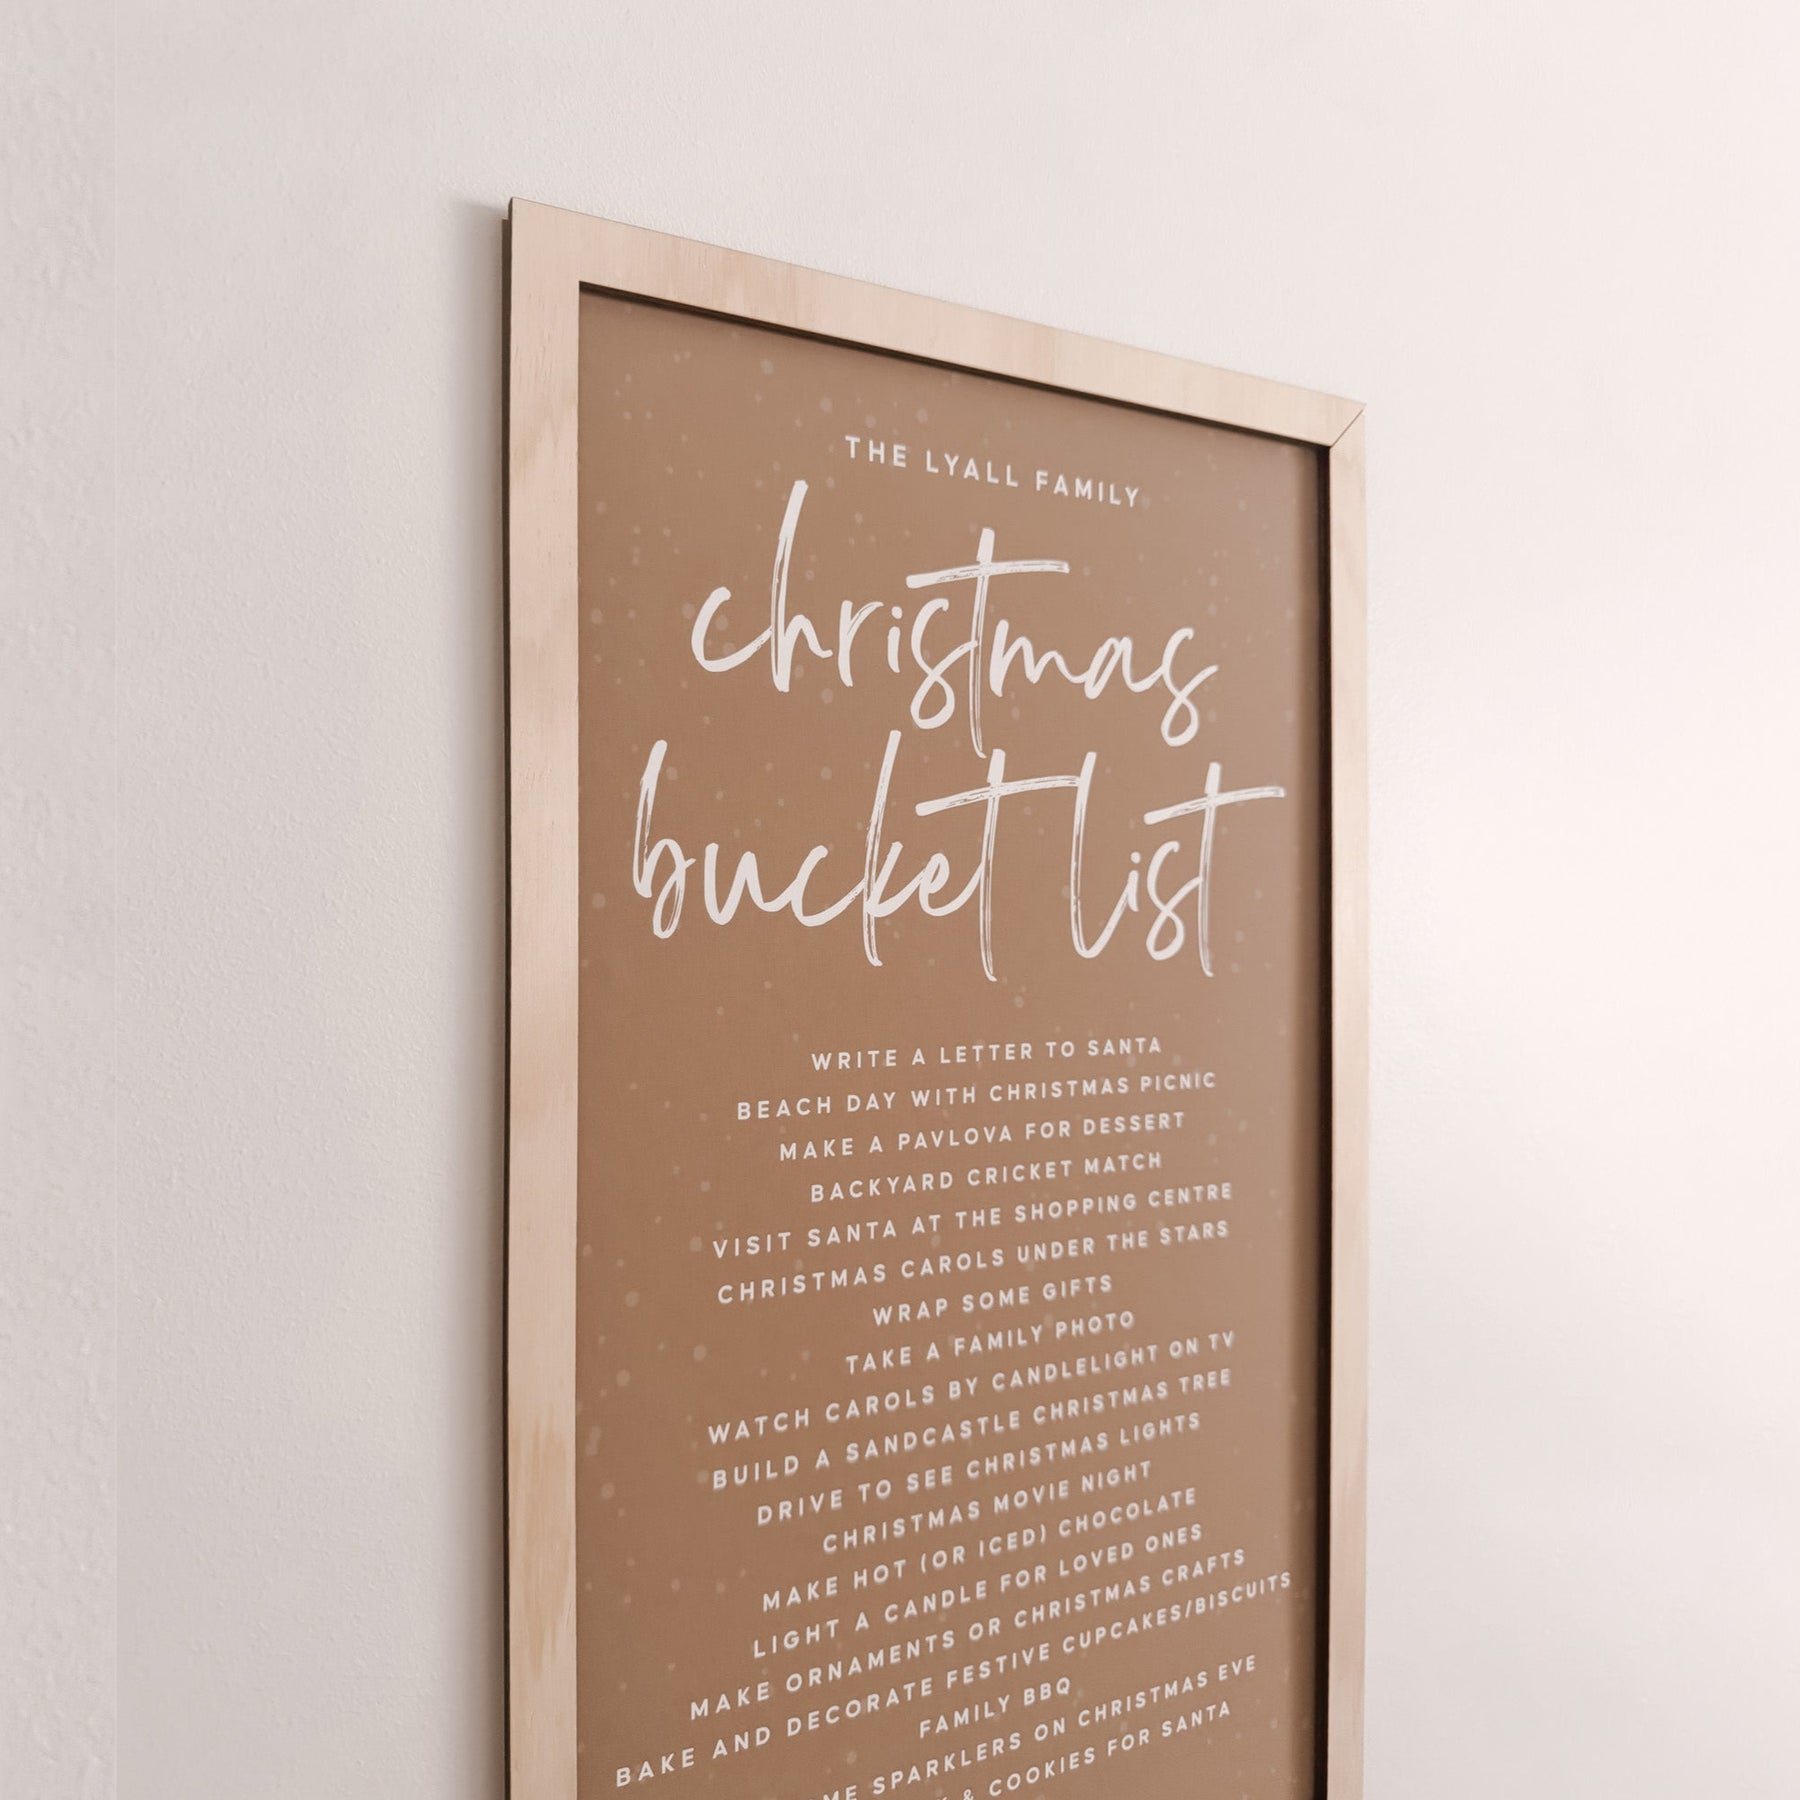 THE LYALL FAMILY
christmas
bucket list
WRITE A LETTER TO SANTA
BEACH DAY WITH CHRISTMAS PICNIC
MAKE A PAVLOVA FOR DESSERT
BACKYARD CRICKET MATCH
VISIT SANTA AT THE SHOPPING CENTRE
CHRISTMAS CAROLS UNDER THE STARS
WRAP SOME GIFTS
TAKE A FAMILY PHOTO
WATCH CAROLS BY CANDLELIGHT ON TV
BUILD A SANDCASTLE CHRISTMAS TREE
DRIVE TO SEE CHRISTMAS LIGHTS
CHRISTMAS MOVIE NIGHT
MAKE HOT (OR ICED) CHOCOLATE
LIGHT A CANDLE FOR LOVED ONES
MAKE ORNAMENTS OR CHRISTMAS CRAFTS
BAKE AND DECORATE FESTIVE CUPCAKES/BISCUITS
FAMILY BBQ
SPARKLERS ON CHRISTMAS EVE
& COOKIES FOR SANTA